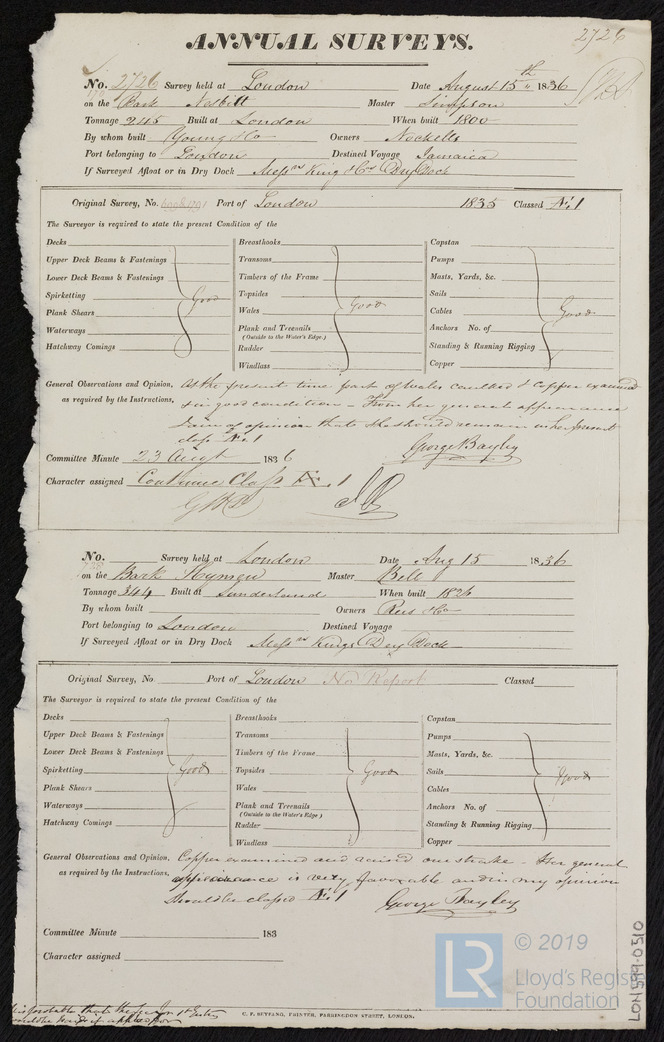 2726
ANNUAL SURVEYS.
No. 2726 Survey held at London Date August 15th 1836
on the Bark Nesbitt Master Simpson
Tonnage Built at London When built 1800
By whom built Young & Co Owners Nockells
Port belonging to London Destined Voyage Jamaica
If Surveyed Afloat or in Dry Dock Messrs King & Co Dry Dock
Original Survey, No. Port of London 1835 Classed Æ 1
The Surveyor is required to state the present Condition of the
Decks Breasthooks Capstan
Upper Deck Beams & Fastenings Transoms Pumps
Lower Deck Beams & Fastenings Timbers of the Frame Masts, Yards, &c.
Spirketting Good Topsides Good Sails
Plank Shears Wales Cables Good
Waterways Plank and Treenails Anchors No. of
(Outside to the Water's Edge.)
Hatchway Comings Rudder Standing & Running Rigging
Windlass Copper
General Observations and Opinion, At the present time part of Wales caulked & Copper examined
as required by the Instructions, & in good condition - From her general appearance
I am of opinion that she should remain in her present
class Æ 1
George Bayley
Committee Minute 23 Augt 1836
Character assigned Continue Class Æ 1
No. Survey held at London Date Aug 15 1836
on the Bark Hymen Master Bell
Tonnage 344 Built at Sunderland When built 1826
By whom built Owners Rees & Co
Port belonging to London Destined Voyage
If Surveyed Afloat or in Dry Dock Messrs Kings Dry Dock
Original Survey, No. Port of London No Report Classed
The Surveyor is required to state the present Condition of the
Decks Breasthooks Capstan
Upper Deck Beams & Fastenings Transoms Pumps
Lower Deck Beams & Fastenings Timbers of the Frame Masts, Yards, &c.
Spirketting Good Topsides Good Sails Good
Plank Shears Wales Cables
Waterways Plank and Treenails Anchors No. of
(Outside to the Water's Edge)
Hatchway Comings Rudder Standing & Running Rigging
Windlass Copper
General Observations and Opinion, Copper examined and raised one strake - Her general
as required by the Instructions, appearance is very favorable and in my opinion
should be classed Æ 1 George Bayley
Committee Minute 183
Character assigned
C. F. SEYFANG, PRINTER, FARRINGDON STREET, LONDON.
LON599-0310
LR © 2019
Lloyd's Register
Foundation